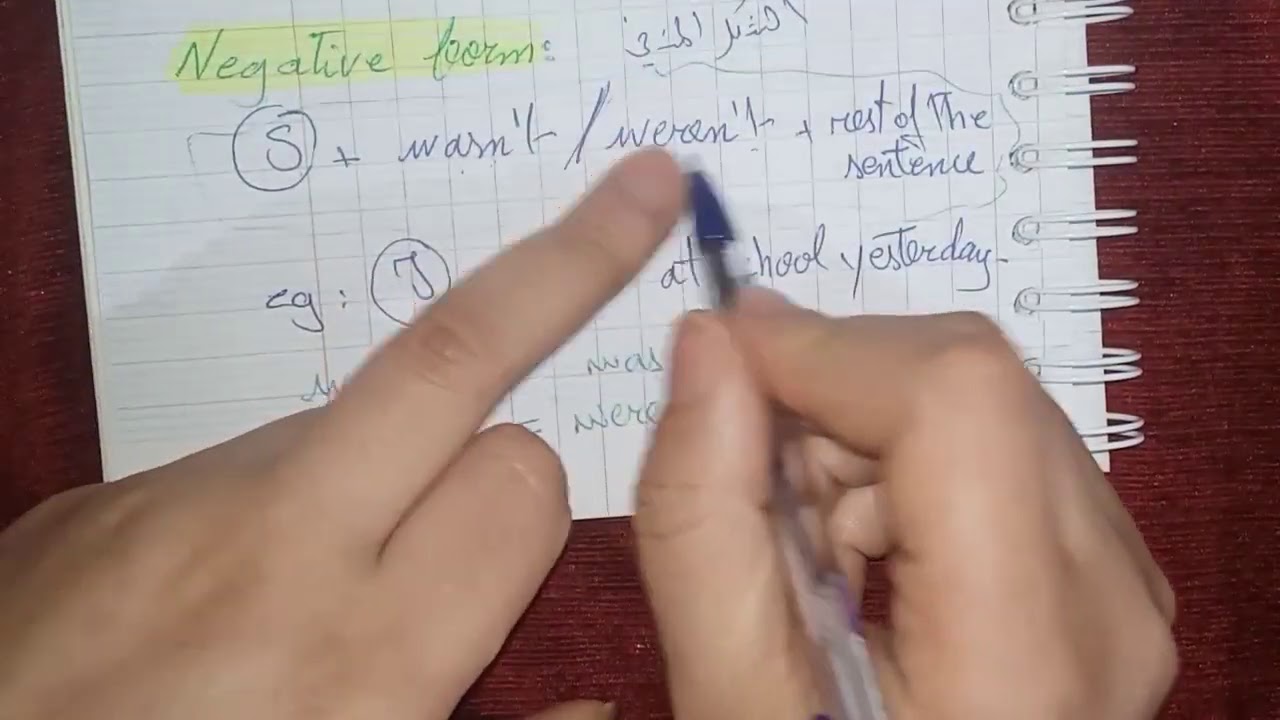 Negative form: الشكل المنفي
S + wasn't / weren't + rest of the
sentence
eg: I at school yesterday.
was
= were